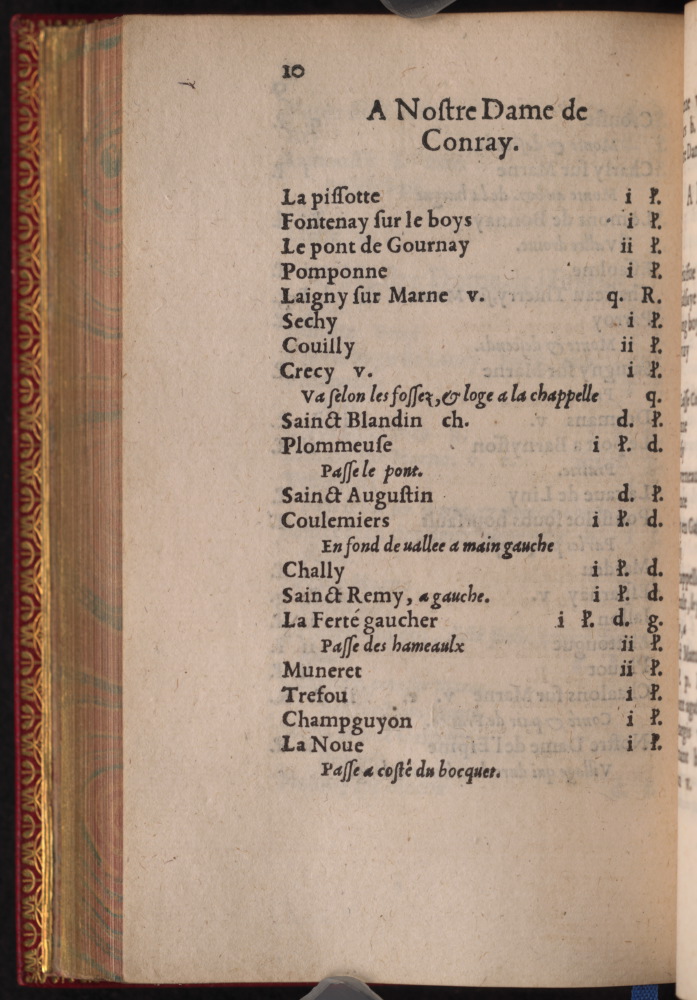 10
A Noſtre Dame de
Conray.
La piſſotte i ł.
Fontenay ſur le boys i ł.
Le pont de Gournay ii ł.
Pomponne i ł.
Laigny ſur Marne v. q. R.
Sechy i ł.
Couilly ii ł.
Crecy v. i ł.
Va ſelon les foſſez, & loge a la chappelle q.
Sainct Blandin ch. d. ł.
Plommeuſe i ł. d.
Paſſe le pont.
Sainct Auguſtin d. ł.
Coulemiers i ł. d.
En fond de uallee a main gauche
Chally i ł. d.
Sainct Remy, a gauche. i ł. d.
La Ferté gaucher i ł. d. g.
Paſſe des hameaulx ii ł.
Muneret ii ł.
Trefou i ł.
Champguyon i ł.
La Noue i ł.
Paſſe a coſté du bocquet.